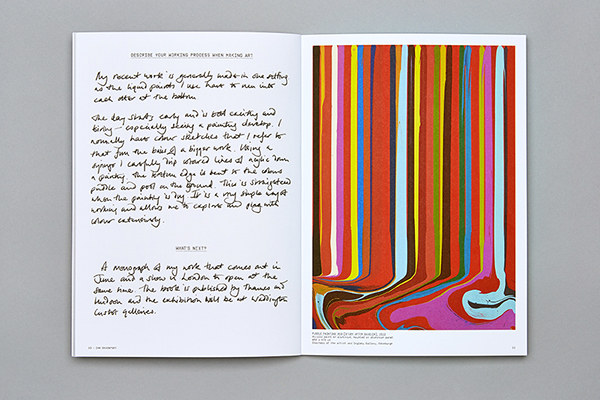 DESCRIBE YOUR WORKING PROCESS WHEN MAKING ART
My recent work is generally made in one sitting
as the liquid paints I use have to run into
each other at the bottom.
The day starts early and is both exciting and
tiring – especially seeing a painting develop. I
normally have colour sketches that I refer to
that form the basis of a bigger work. Using a
syringe I carefully drip colored lines of acrylic down
a painting. The bottom edge is bent so the colours
puddle and pool on the ground. This is straightened
when the painting is dry. It is a very simple way of
working and allows me to explore and play with
colour extensively.
WHAT'S NEXT?
A monograph of my work that comes out in
June and a show in London to open at the
same time. The book is published by Thames and
Hudson and the exhibition will be at Waddington
Custot galleries.
IAN DAVENPORT